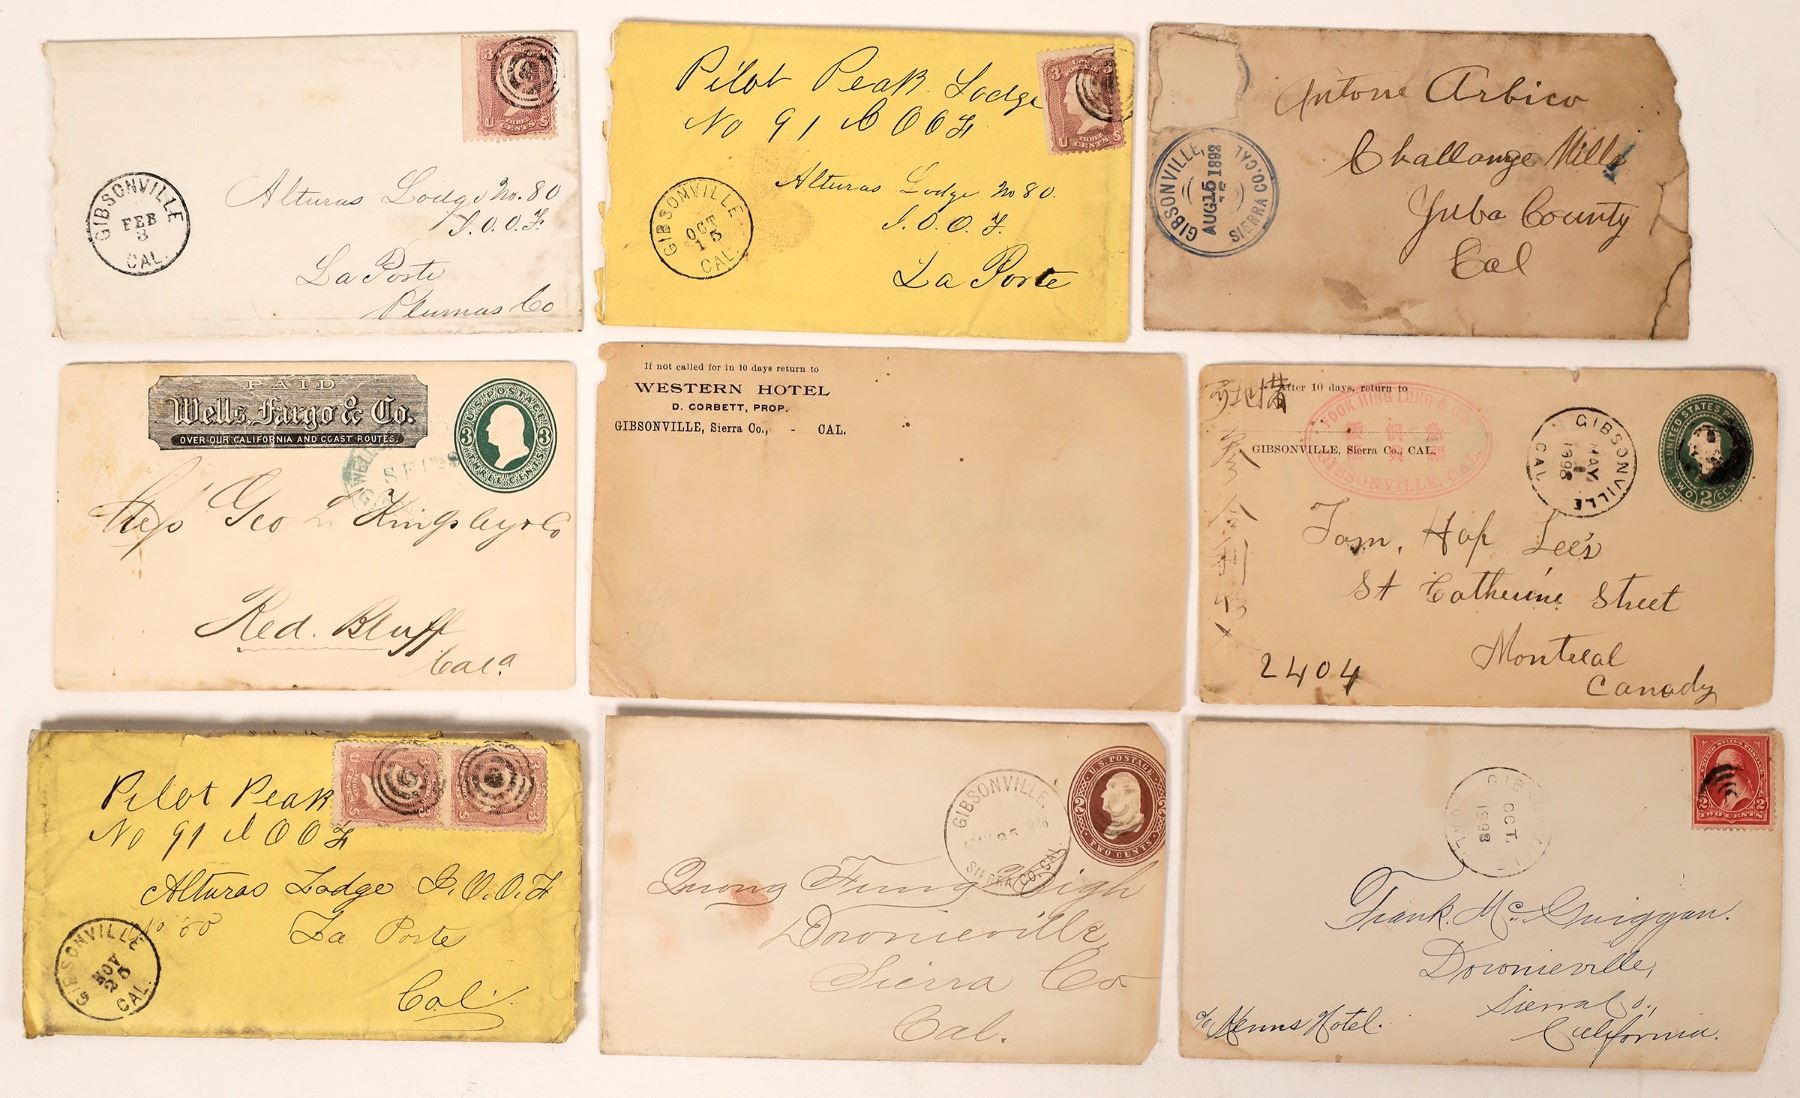 GIBSONVILLE
FEB
3
CAL.
Alturas Lodge No. 80
I.O.O.F.
La Porte
Plumas Co
3
U S
THREE
CENTS
Pilot Peak Lodge
No 91 I O O F
Alturas Lodge No 80.
I. O. O. F.
La Porte
GIBSONVILLE
OCT
15
CAL.
3
U S
THREE
CENTS
Antone Arbico
Challange Mills
Yuba County
Cal
GIBSONVILLE,
AUG 15 1892
SIERRA CO. CAL
PAID
Wells, Fargo & Co.
OVER OUR CALIFORNIA AND COAST ROUTES.
U.S. POSTAGE
3 3
THREE CENTS
WELLS
SEP
Mess Geo L Kingsley & Co
Red. Bluff
Cala
If not called for in 10 days return to
WESTERN HOTEL
D. CORBETT, PROP.
GIBSONVILLE, Sierra Co., - CAL.
After 10 days, return to
GIBSONVILLE, Sierra Co., CAL.
GIBSONVILLE, CAL.
GIBSONVILLE
MAY
1898
CAL
UNITED STATES
TWO 2 CENTS
Tom, Hop Lee's
St Catherine Street
Montreal
Canady
2404
Pilot Peak
No 91 I O O F
Alturas Lodge I. O. O. F
No 80
La Porte
Cal.
GIBSONVILLE
NOV
25
CAL.
GIBSONVILLE,
SIERRA CO., CAL.
U.S. POSTAGE
2 2
TWO CENTS
Quong Fung High
Downieville,
Sierra Co
Cal.
GIBSONVILLE
OCT.
1898
CAL.
2 2
TWO CENTS
Frank. Mc. Guiggan.
Downieville,
Sierra Co.,
California.
c/o Kenns Hotel.